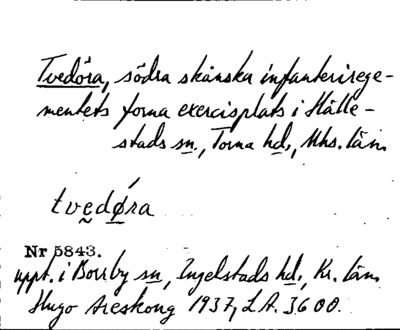 Tvedöra, södra skånska infanterirege-
mentets forna exercisplats i Hälle-
stads sn., Torna hd., Mhs. län.
tvedǿra
Nr 5843.
uppt. i Borrby sn, Ingelstads hd., Kr. län.
Hugo Areskoug 1937, L.A. 3600.